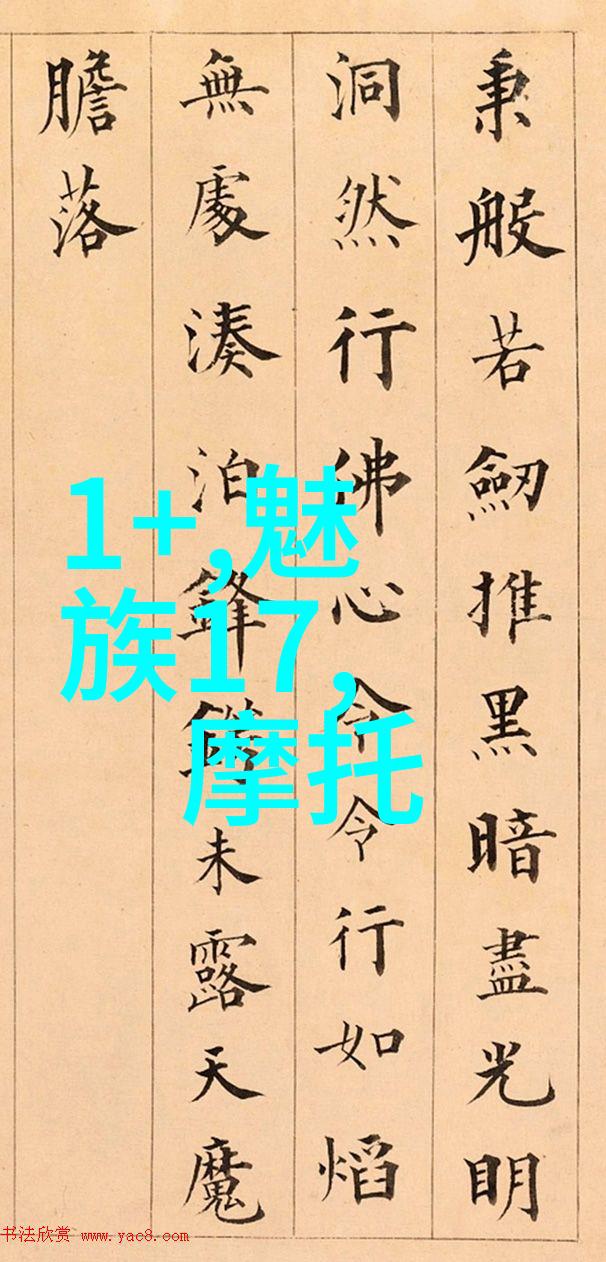 秉般若劒推黑暗盡光明
洞然行佛心令令行如熖
無處湊泊鋒鋩未露天魔
膽落
1+,魅
族17,
摩托
书法欣赏 www.yac8.com